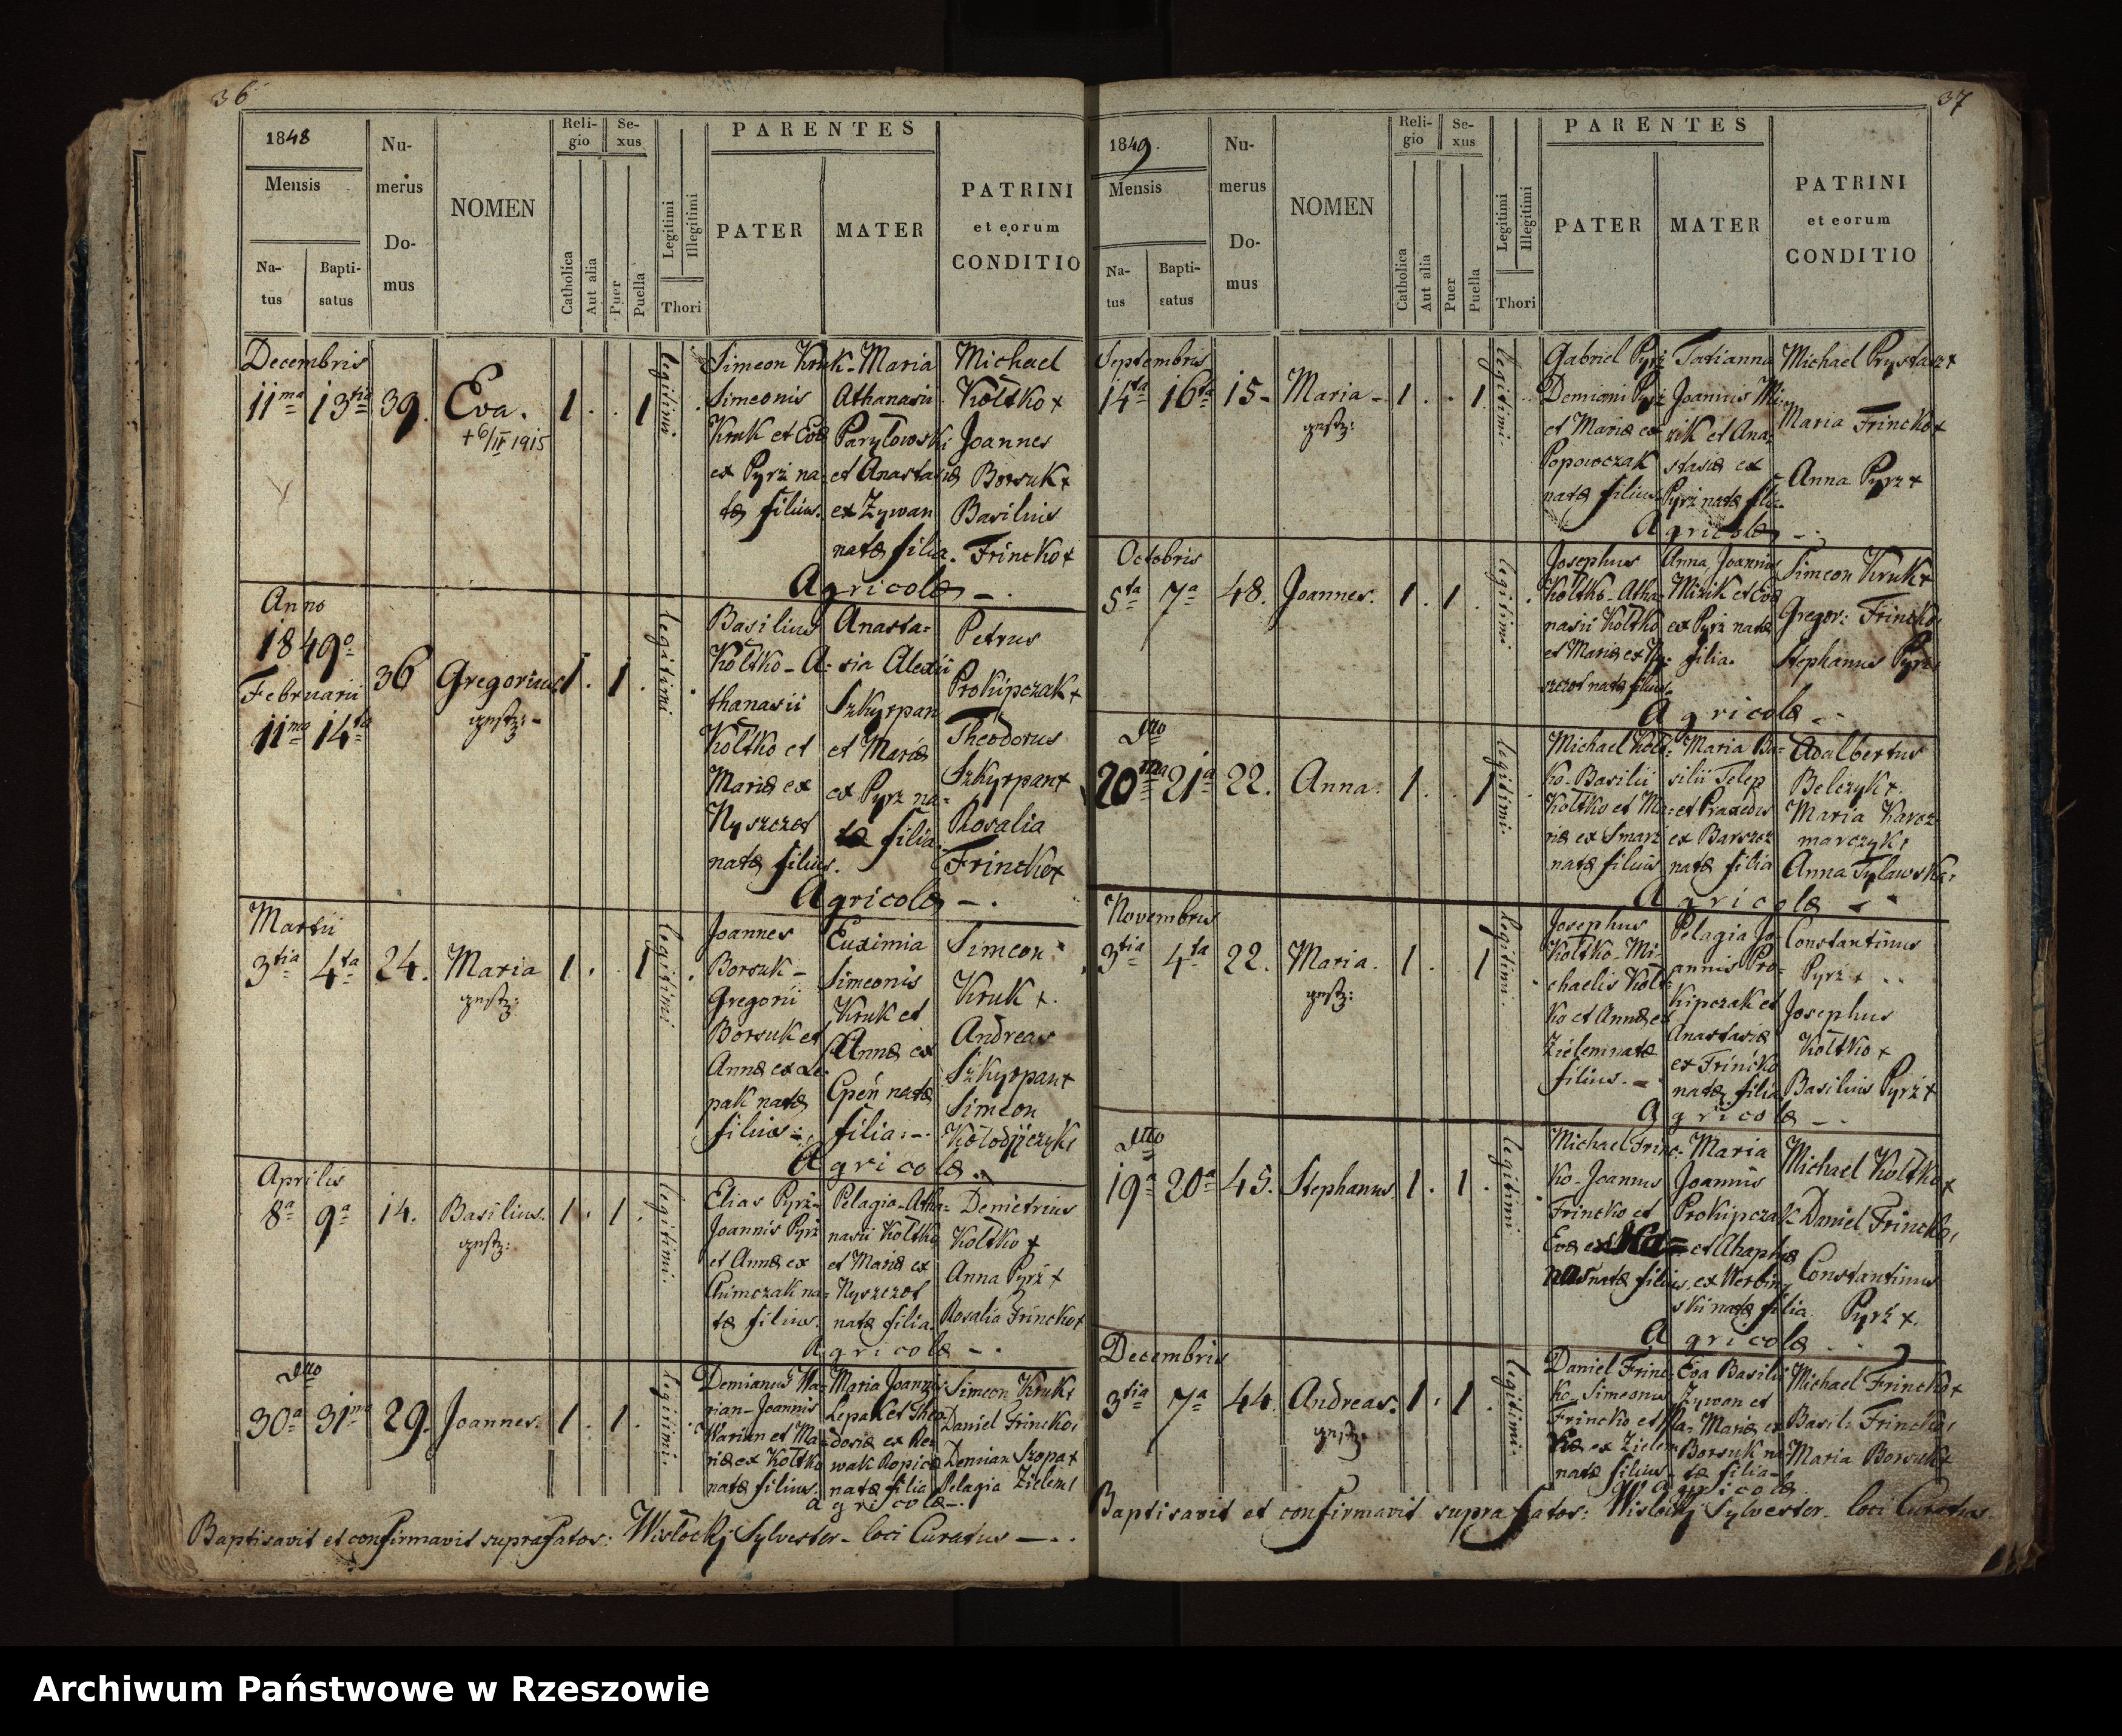 36
1848
Mensis
Na-
tus
Bapti-
satus
Nu-
merus
Do-
mus
NOMEN
Reli-
gio
Catholica
Aut alia
Se-
xus
Puer
Puella
Legitimi
Illegitimi
Thori
PARENTES
PATER
MATER
PATRINI
et eorum
CONDITIO
Decembris
11ma 13tia 39. Eva. 1. . 1 legitimi
+ 6/II 1915
Simeon Kruk
Simeonis
Kruk et Evæ
ex Pyrz na-
tæ filius.
Maria
Athanasii
Paryłowski
et Anastasiæ
ex Zywan
natæ filia.
Michael
Kołtko +
Joannes
Borsuk +
Basilius
Frincko +
Agricolæ
Anno
1849o
Februarii
11ma 14ta 36 Gregorius 1. 1. legitimi
gestz:
Basilius
Kołtko - A-
thanasii
Kołtko et
Mariæ ex
Nyszczot
natæ filius.
Anasta=
sia Alexii
Szkyrpan
et Mariæ
ex Pyrz na-
tæ filia.
Petrus
Prokipczak +
Theodorus
Szkyrpan +
Rosalia
Frincko +
Agricolæ
Martii
3tia 4ta 24. Maria 1. . 1 legitimi
gestz:
Joannes
Borsuk -
Gregorii
Borsuk et
Annæ ex Le-
pak natæ
filius
Euximia
Simeonis
Kruk et
Annæ ex
Cpeń natæ
filia
Simeon
Kruk +.
Andreas
Szkyrpan +
Simeon
Kołodijczyk
Agricolæ
Aprilis
8a 9a 14. Basilius. 1. 1. legitimi.
gestz:
Elias Pyrz -
Joannis Pyrz
et Annæ ex
Chimczak na-
tæ filius.
Pelagia - Atha-
nasii Kołtko
et Mariæ ex
Nyszczot
natæ filia.
Demetrius
Kołtko +
Anna Pyrz +
Rosalia Frincko +
Agricolæ
Dtto
30a 31ma 29. Joannes. 1. 1. legitimi.
Demianus Wa-
rian - Joannis
Warian et Ma-
riæ ex Kołtko
natæ filius.
Maria Joannis
Lepak et Theo-
dosiæ ex
natæ filia
Simeon Kruk
Daniel Frincko
Demian Szopa +
Pelagia Zielem
agricolæ
Baptisavit et confirmavit suprafatos: Wisłockj Sylvester - loci Curatus
37
1849.
Mensis
Na-
tus
Bapti-
satus
Nu-
merus
Do-
mus
NOMEN
Reli-
gio
Catholica
Aut alia
Se-
xus
Puer
Puella
Legitimi
Illegitimi
Thori
PARENTES
PATER
MATER
PATRINI
et eorum
CONDITIO
Septembris
14ta 16ta 15. Maria 1. . 1. legitimi.
gestz:
Gabriel Pyrz
Demiani Pyrz
et Mariæ ex
Popowczak
natæ filius
Tatianna
Joannis Mi-
zik et Ana-
stasiæ ex
Pyrz natæ filia.
Michael Prystasz +
Maria Frincko +
Anna Pyrz +
Agricolæ
Octobris
5ta 7a 48. Joannes. 1. 1. legitimi.
Josephus
Kołtko - Atha-
nasii Kołtko
et Mariæ ex Ny-
szczot natæ filius
Anna Joannis
Mizik et Evæ
ex Pyrz natæ
filia.
Simeon Kruk +
Gregor: Frincko
Stephanus Pyrz
Agricolæ
Dtto
20ma 21a 22. Anna. 1. . 1 legitimi.
Michael Kołt-
ko - Basilii
Kołtko et Ma-
riæ ex Smarz
natæ filius
Maria Ba-
silii Telep
et Praxedis
ex Barszcz
natæ filia
Adalbertus
Belczyk +.
Maria Karcz-
marczyk
Anna Tylawska
Agricolæ
Novembris
3tia 4ta 22. Maria. 1. . 1 legitimi.
gestz:
Josephus
Kołtko - Mi-
chaelis Kołt-
ko et Annæ ex
Zielem natæ
filius.
Pelagia Jo-
annis Pro-
kipczak et
Anastasiæ
ex Frincko
natæ filia
Constantinus
Pyrz +
Josephus
Kołtko +
Basilius Pyrz +
Agricolæ
Dtto
19a 20a 45. Stephanus 1. 1. legitimi
Michael Frinc-
ko - Joannis
Frincko et
Evæ ex Ka-
nas natæ filius.
Maria
Joannis
Prokipczak
et Ahaphiæ
ex Werbin-
ski natæ filia
Michael Kołtko +
Daniel Frincko
Constantinus
Pyrz +.
Agricolæ
Decembris
3tia 7a 44. Andreas. 1. 1. legitimi.
gestz:
Daniel Frinc-
ko - Simeonis
Frincko et
ex Zielem
natæ filius
Eva Basilii
Zywan et
Mariæ ex
Borsuk na-
tæ filia
Michael Frincko +
Basil: Frincko
Maria Borsuk +
agricolæ
Baptisavit et confirmavit suprafatos: Wisłockj Sylvester - loci Curatus
Archiwum Państwowe w Rzeszowie